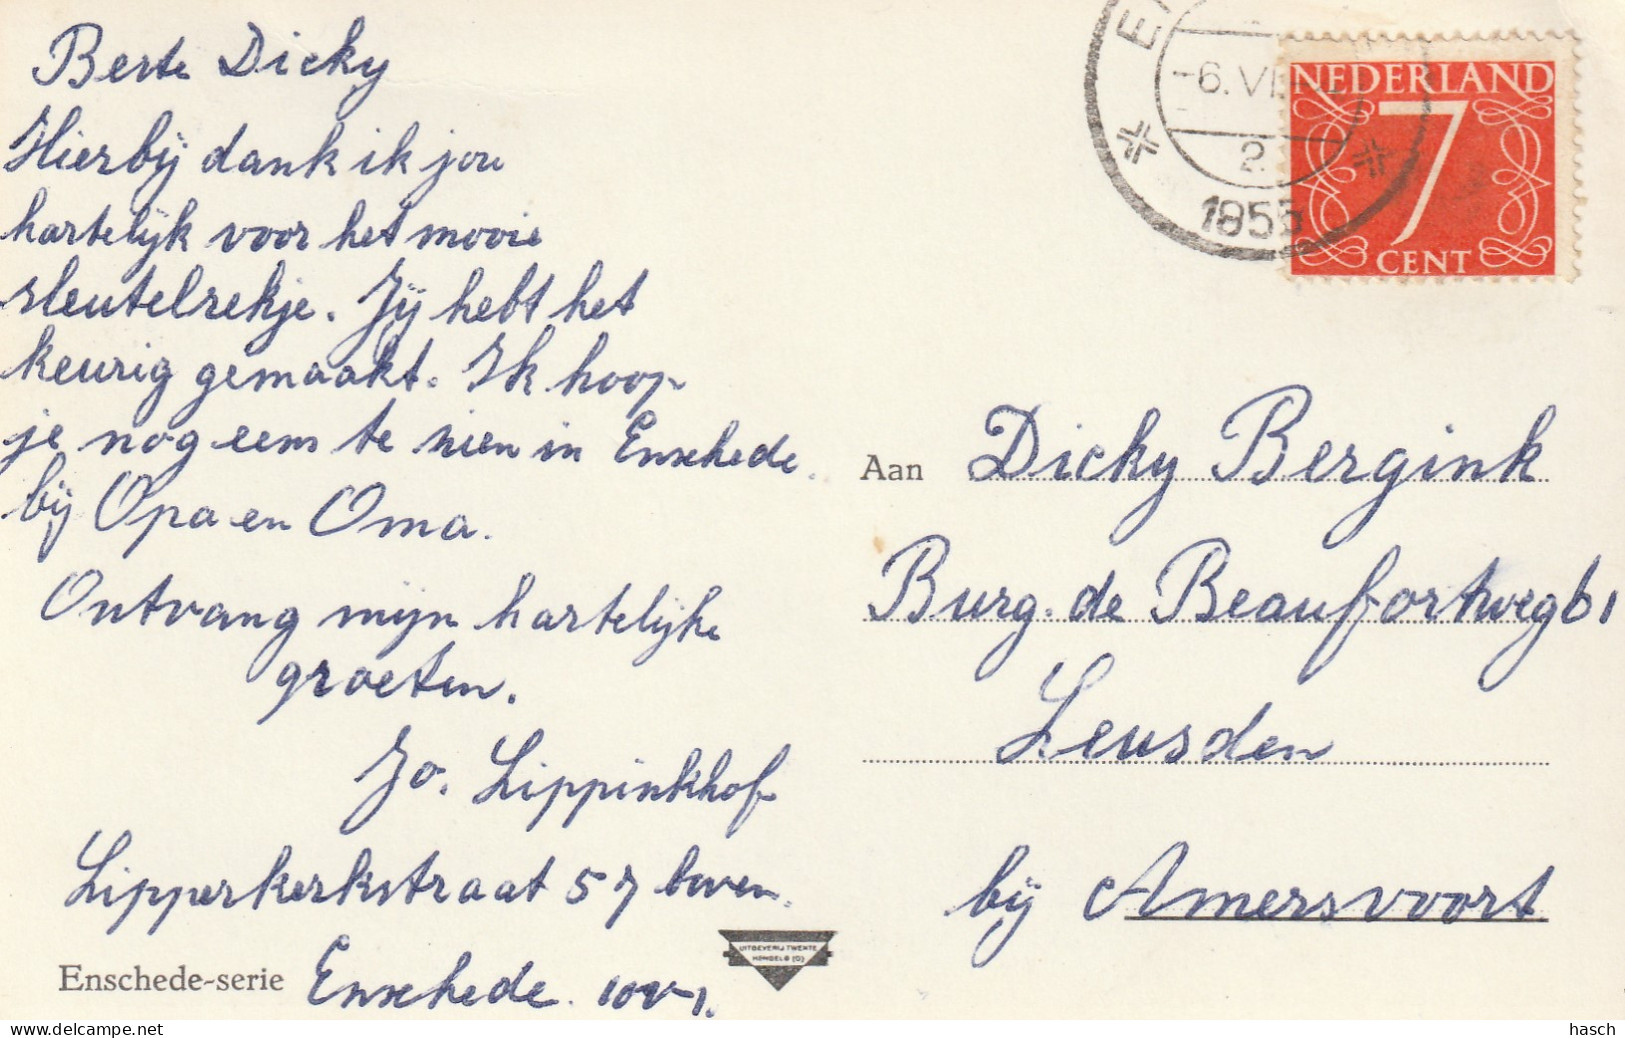 Beste Dicky
Hierbij dank ik jou
hartelijk voor het mooie
sleutelrekje. Jij hebt het
keurig gemaakt. Ik hoop
je nog eens te zien in Enschede.
bij Opa en Oma.
Ontvang mijn hartelijke
groeten.
Jo. Lippinkhof
Lipperkerkstraat 57 boven.
Enschede-serie Enschede.
UITGEVERIJ TWENTE
HENGELO (O)
-6.VI
2.
1855
NEDERLAND
7
CENT
Aan Dicky Bergink
Burg. de Beaufortweg 61
Leusden
bij Amersvoort
hasch